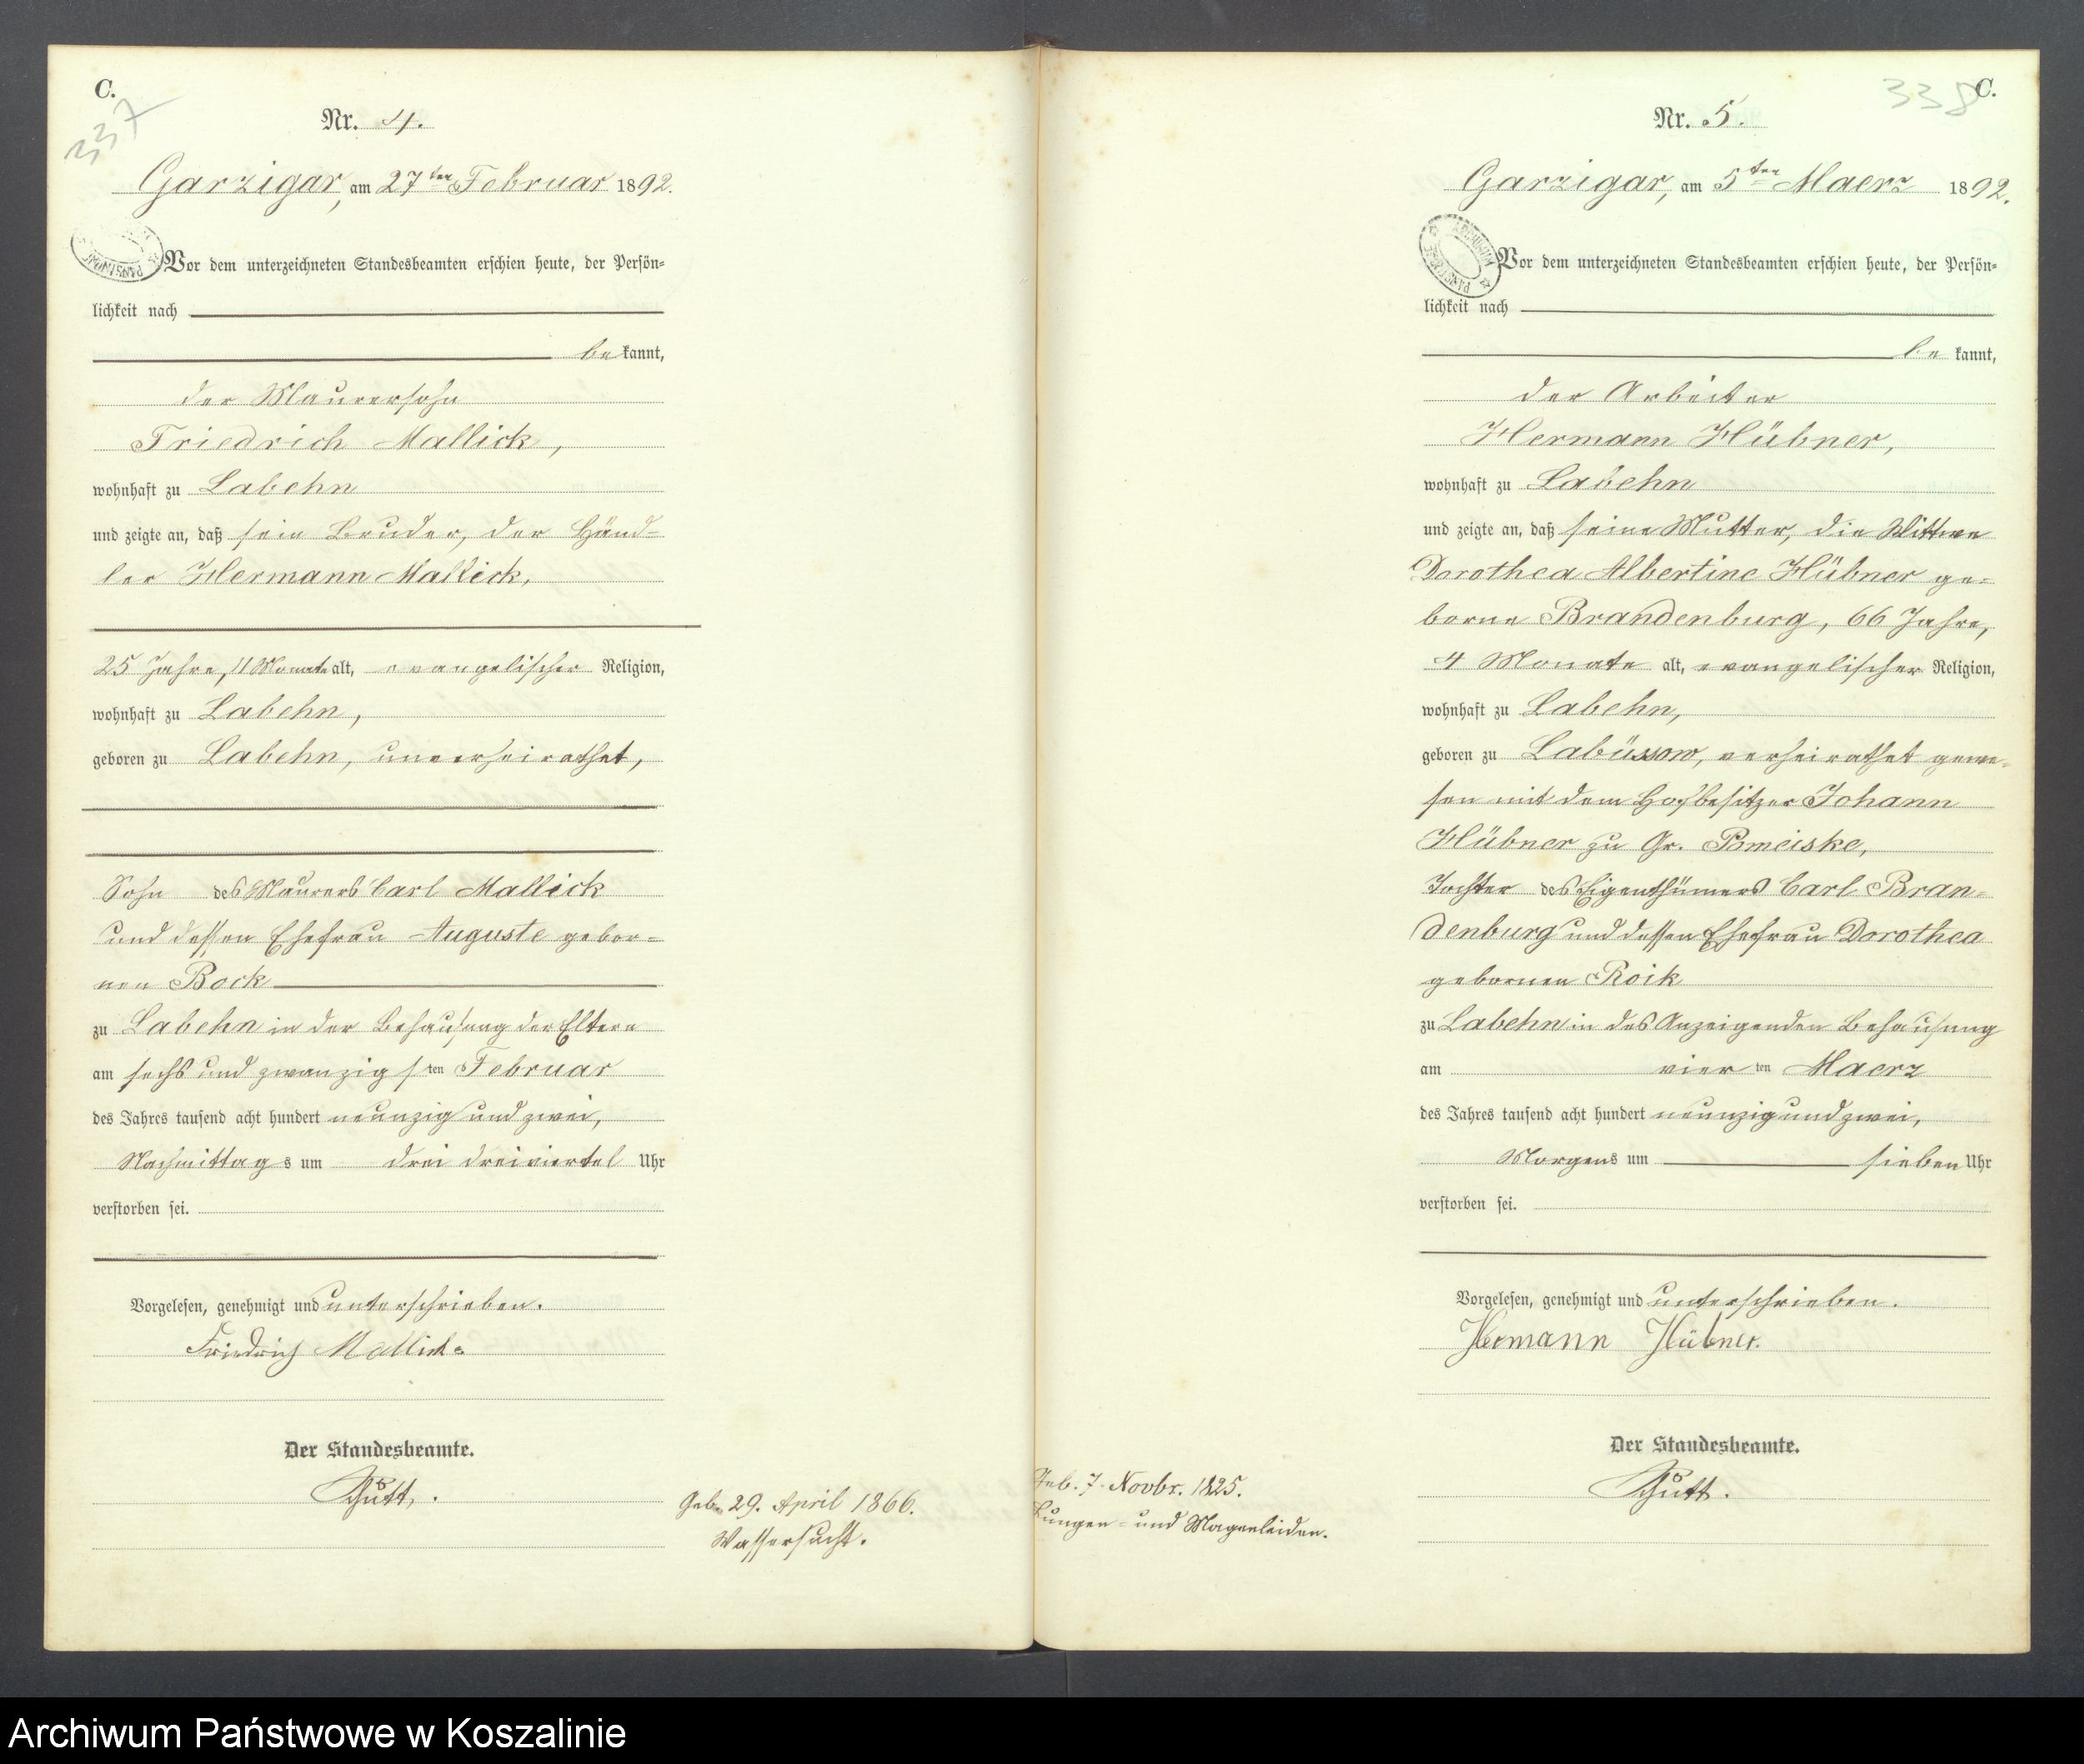 C.
337
Nr. 4.
Garzigar, am 27ten Februar 1892.
Vor dem unterzeichneten Standesbeamten erschien heute, der Persön-
lichkeit nach
bekannt,
der Maurersohn
Friedrich Mallick,
wohnhaft zu Labehn
und zeigte an, daß sein Bruder, der Händ-
ler Hermann Mallick,
25 Jahre, 11 Monate alt, evangelischer Religion,
wohnhaft zu Labehn,
geboren zu Labehn, unverheirathet,
Sohn des Maurers Carl Mallick
und dessen Ehefrau Auguste gebor-
nen Bock
zu Labehn in der Behausung der Eltern
am sechs und zwanzigsten Februar
des Jahres tausend acht hundert neunzig und zwei,
Nachmittags um drei dreiviertel Uhr
verstorben sei.
Vorgelesen, genehmigt und unterschrieben.
Friedrich Mallick
Der Standesbeamte.
Schütt.
Geb. 29. April 1866.
Wassersucht.
338
C.
Nr. 5.
Garzigar, am 5ten Maerz 1892.
ARCHIWUM PAŃSTWOWE
Vor dem unterzeichneten Standesbeamten erschien heute, der Persön-
lichkeit nach
be kannt,
der Arbeiter
Hermann Hübner,
wohnhaft zu Labehn
und zeigte an, daß seine Mutter, die Wittwe
Dorothea Albertine Hübner ge-
borne Brandenburg, 66 Jahre,
4 Monate alt, evangelischer Religion,
wohnhaft zu Labehn,
geboren zu Labüssow, verheirathet gewe-
sen mit dem Hofbesitzer Johann
Hübner zu Gr. Pomeiske,
Tochter des Eigenthümers Carl Bran-
denburg und dessen Ehefrau Dorothea
gebornen Roik
zu Labehn in des Anzeigenden Behausung
am vierten Maerz
des Jahres tausend acht hundert neunzig und zwei,
Morgens um sieben Uhr
verstorben sei.
Vorgelesen, genehmigt und unterschrieben.
Hermann Hübner.
Der Standesbeamte.
Schütt.
Geb. 7. Novbr. 1825.
Lungen- und Magenleiden.
Archiwum Państwowe w Koszalinie